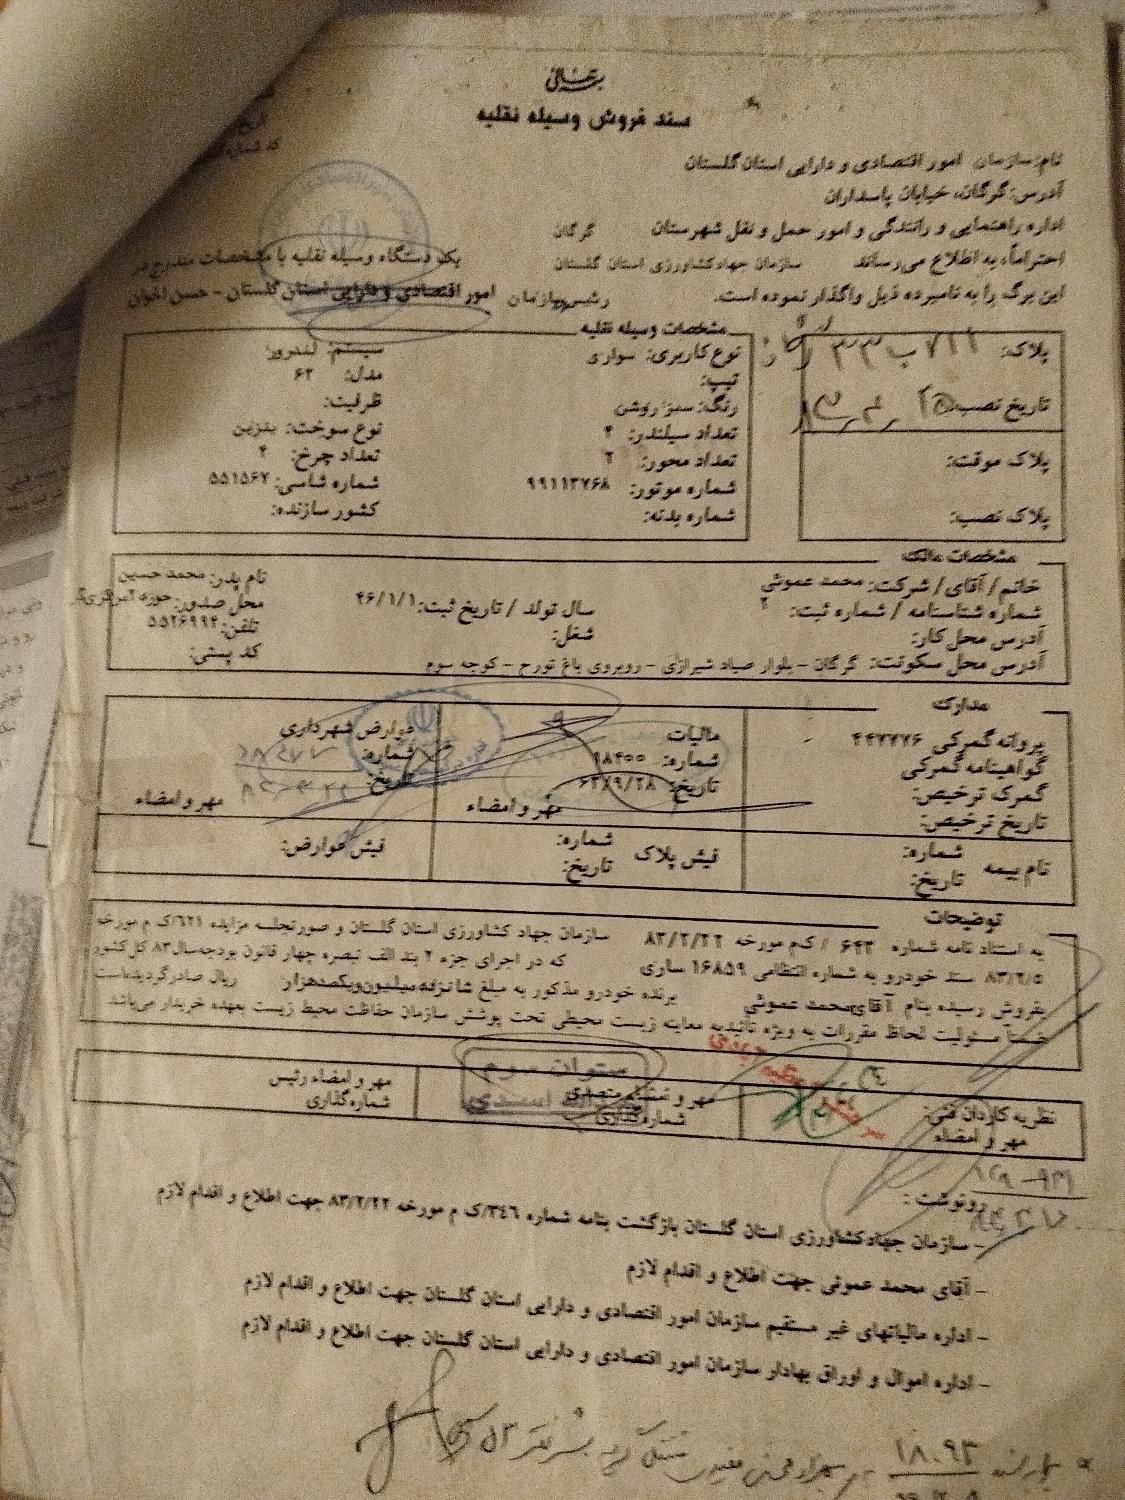 بسمه تعالی
سند فروش وسیله نقلیه
کد شماره
نام: سازمان امور اقتصادی و دارایی استان گلستان
آدرس: گرگان، خیابان پاسداران
اداره راهنمایی و رانندگی و امور حمل و نقل شهرستان گرگان
احتراماً، به اطلاع می‌رساند سازمان جهادکشاورزی استان گلستان یک دستگاه وسیله نقلیه با مشخصات مندرج در
این برگ را به نامبرده ذیل واگذار نموده است. رئیس سازمان امور اقتصادی و دارایی استان گلستان - حسن اخوان
مشخصات وسیله نقلیه
پلاک: ۷۱۱ ب ۳۳
تاریخ نصب:
پلاک موقت:
پلاک نصب:
نوع کاربری: سواری سیستم: لندرور
تیپ: مدل: ۶۲
رنگ: سبز روشن ظرفیت:
تعداد سیلندر: ۴ نوع سوخت: بنزین
تعداد محور: ۲ تعداد چرخ: ۴
شماره موتور: ۹۹۱۱۳۷۶۸ شماره شاسی: ۵۵۱۵۶۷
شماره بدنه: کشور سازنده:
مشخصات مالک
خانم / آقای / شرکت: محمد عموئی نام پدر: محمد حسین
شماره شناسنامه / شماره ثبت: ۲ سال تولد / تاریخ ثبت: ۴۶/۱/۱ محل صدور: حوزه ۲مرکزی
آدرس محل کار: شغل: تلفن: ۵۵۲۶۹۹۲
آدرس محل سکونت: گرگان - بلوار صیاد شیرازی - روبروی باغ تورج - کوچه سوم کد پستی:
مدارک
پروانه گمرکی ۴۴۷۷۷۶ مالیات عوارض شهرداری
گواهینامه گمرکی شماره: ۱۸۴۰۰ شماره:
گمرک ترخیص: تاریخ: ۶۲/۹/۲۸ تاریخ:
تاریخ ترخیص: مهر و امضاء مهر و امضاء
نام بیمه شماره: تاریخ: فیش پلاک شماره: تاریخ: فیش عوارض:
توضیحات
به استناد نامه شماره ۶۴۳ / ک م مورخه ۸۳/۲/۲۲ سازمان جهاد کشاورزی استان گلستان و صورتجلسه مزایده ۶۲۱/ک م مورخه
۸۳/۲/۵ سند خودرو به شماره انتظامی ۱۶۸۵۹ ساری که در اجرای جزء ۲ بند الف تبصره چهار قانون بودجه سال ۸۳ کل کشور
بفروش رسیده بنام آقای محمد عموئی برنده خودرو مذکور به مبلغ شانزده میلیون و یکصد هزار ریال صادر گردیده است
ضمناً مسئولیت لحاظ مقررات به ویژه تائیدیه معاینه زیست محیطی تحت پوشش سازمان حفاظت محیط زیست بعهده خریدار می‌باشد
نظریه کاردان فنی: مهر و امضاء متصدی مهر و امضاء رئیس
مهر و امضاء شماره گذاری شماره گذاری
ستوان سوم
اسدی
رونوشت:
- سازمان جهادکشاورزی استان گلستان بازگشت بنامه شماره ۳۴۶/ک م مورخه ۸۳/۲/۲۲ جهت اطلاع و اقدام لازم
- آقای محمد عموئی جهت اطلاع و اقدام لازم
- اداره مالیاتهای غیر مستقیم سازمان امور اقتصادی و دارایی استان گلستان جهت اطلاع و اقدام لازم
- اداره اموال و اوراق بهادار سازمان امور اقتصادی و دارایی استان گلستان جهت اطلاع و اقدام لازم